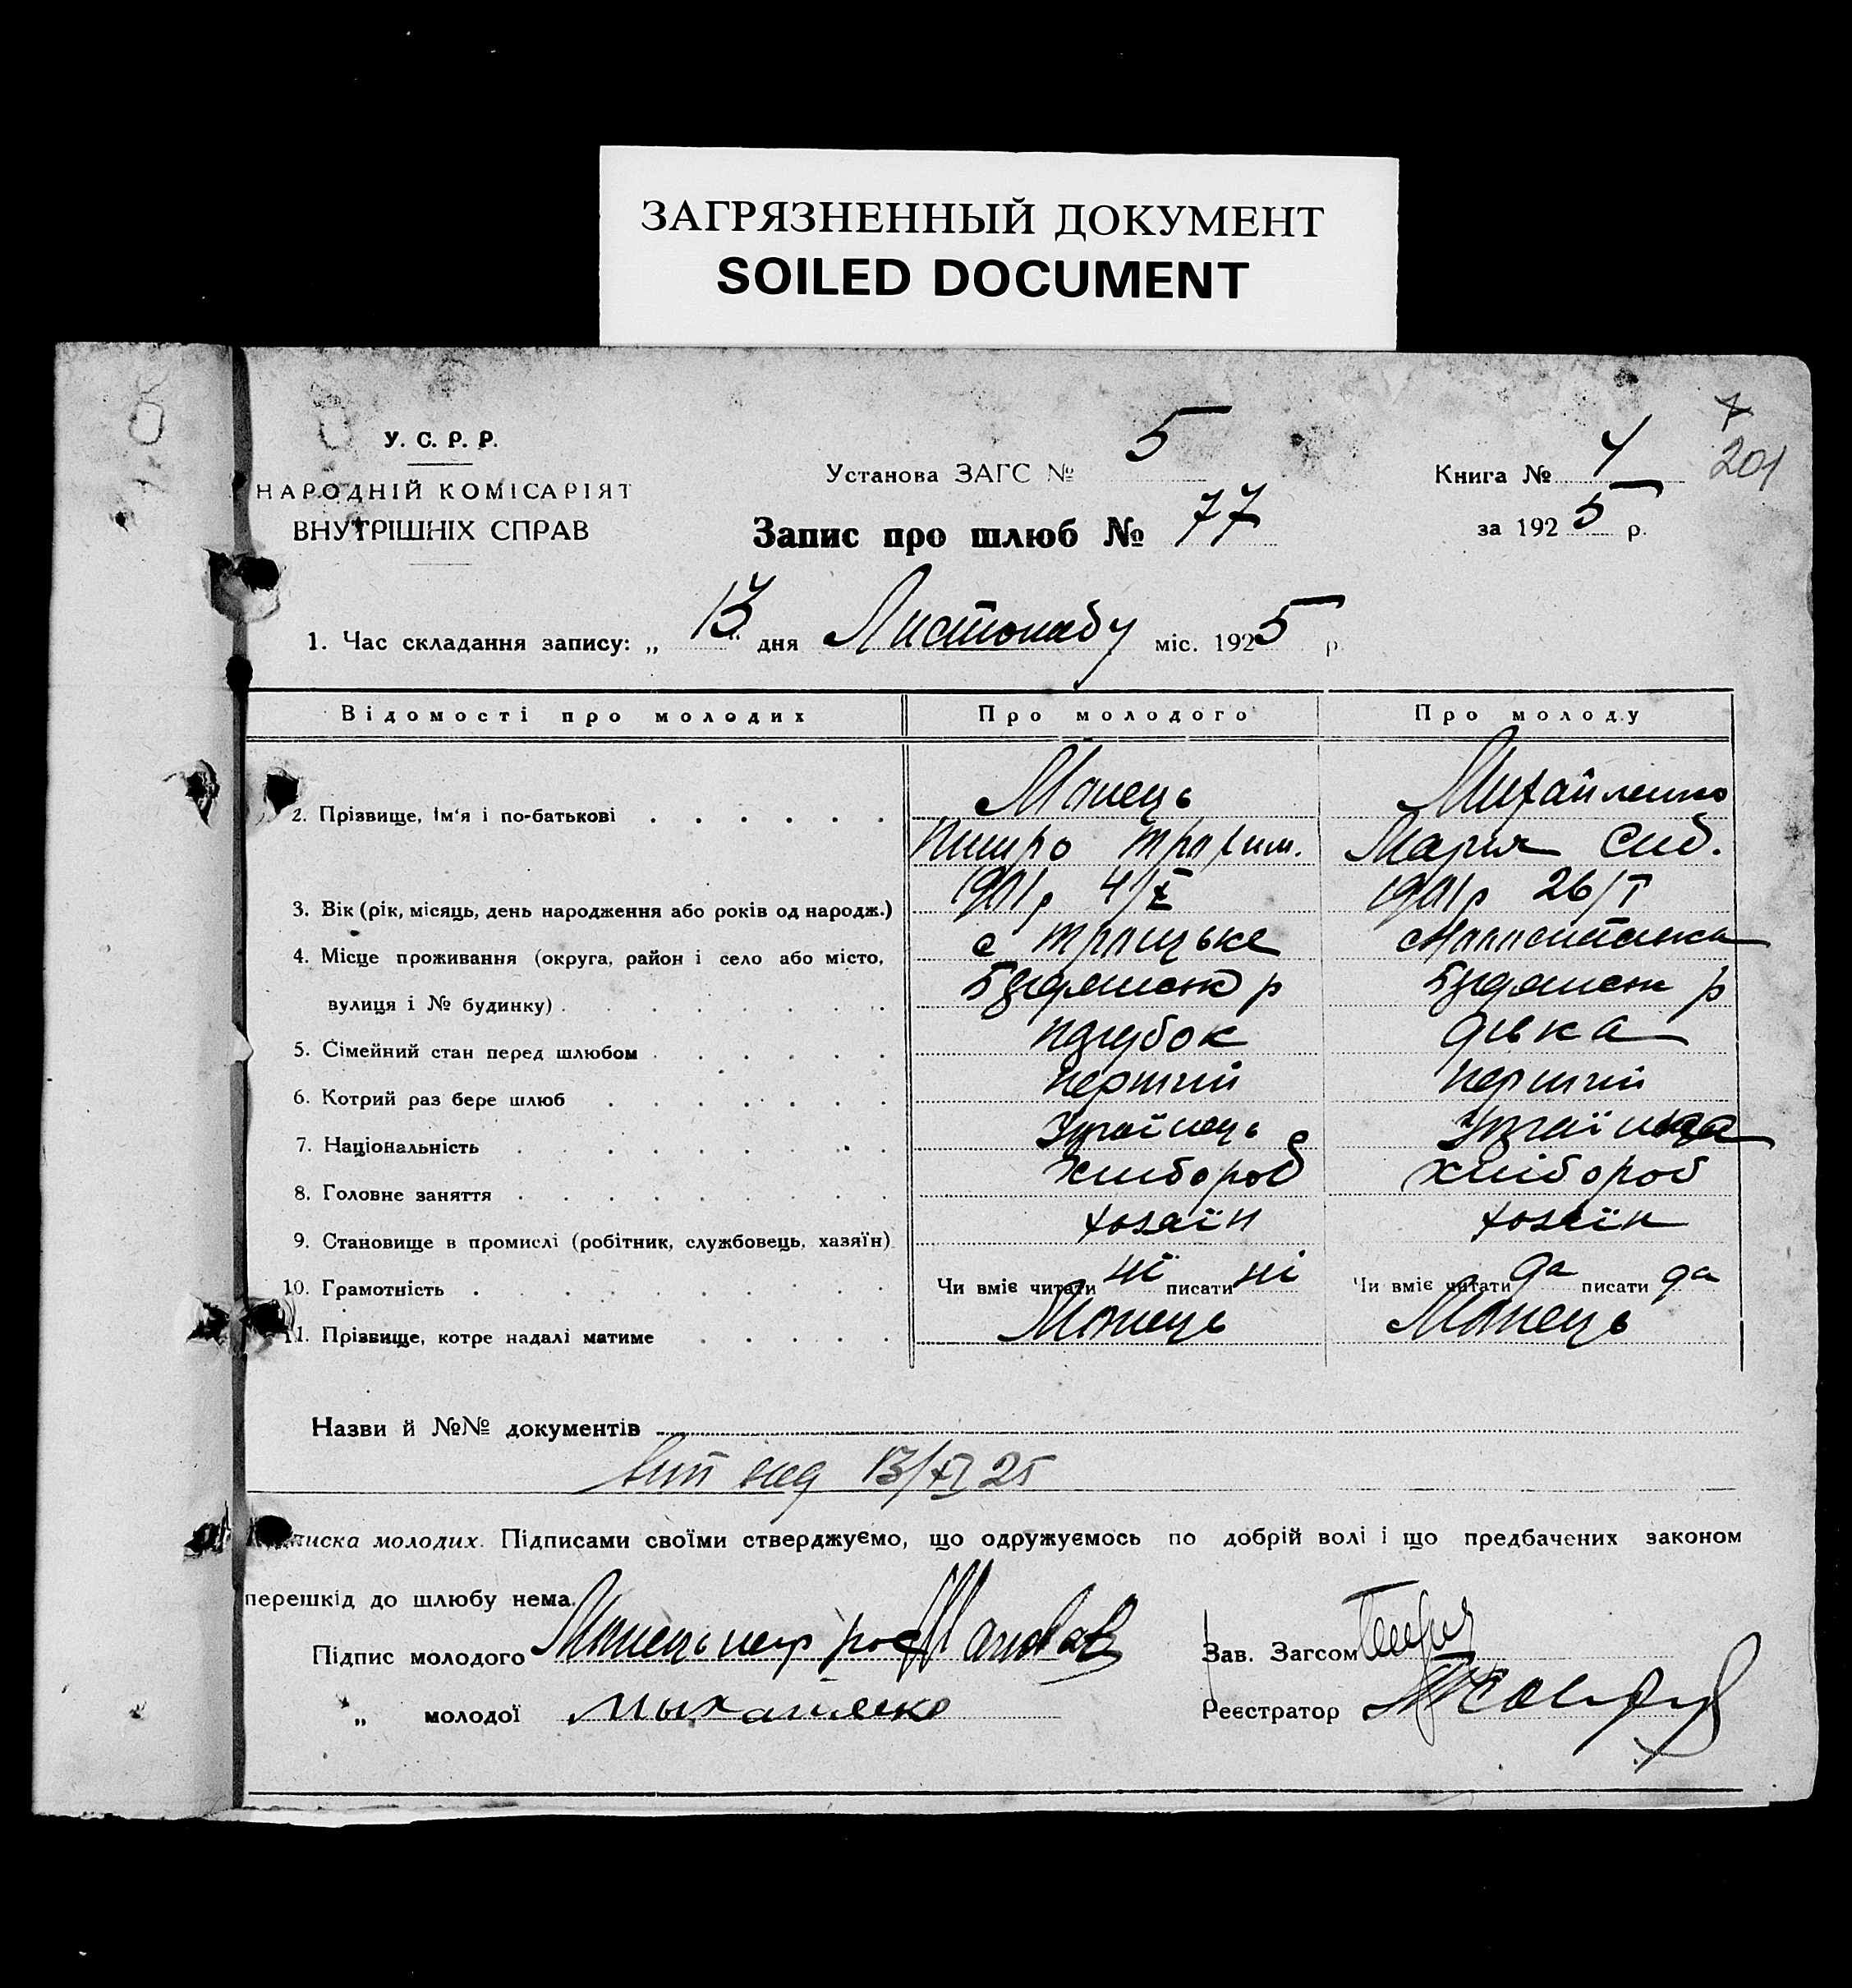 ЗАГРЯЗНЕННЫЙ ДОКУМЕНТ
SOILED DOCUMENT
У. С. Р. Р.
НАРОДНІЙ КОМІСАРІЯТ
ВНУТРІШНІХ СПРАВ
Установа ЗАГС № 5
Запис про шлюб № 77
Книга № 4
201
за 1925 р.
1. Час складання запису: „13" дня Листопаду міс. 1925 р
Відомості про молодих Про молодого Про молоду
2. Прізвище, Ім'я і по-батькові Манець Михайленко
Трохим. Мария Сид.
3. Вік (рік, місяць, день народження або років од народж.) 1901 р 4/X 1901 р 26/I
4. Місце проживання (округа, район і село або місто, с Троицьке
вулиця і № будинку) р р
5. Сімейний стан перед шлюбом парубок дівка
6. Котрий раз бере шлюб перший перший
7. Національність Українець Українка
8. Головне заняття хлібороб хлібороб
9. Становище в промислі (робітник, службовець, хазяїн) хозаїн хозаїн
10. Грамотність Чи вміє читати ні писати ні Чи вміє читати да писати да
11. Прізвище, котре надалі матиме Манець Манець
Назви й №№ документів
13/XI 25
писка молодих. Підписами своїми стверджуємо, що одружуємось по добрій волі і що предбачених законом
перешкід до шлюбу нема.
Підпис молодого Манець Зав. Загсом
„ молодої Реєстратор